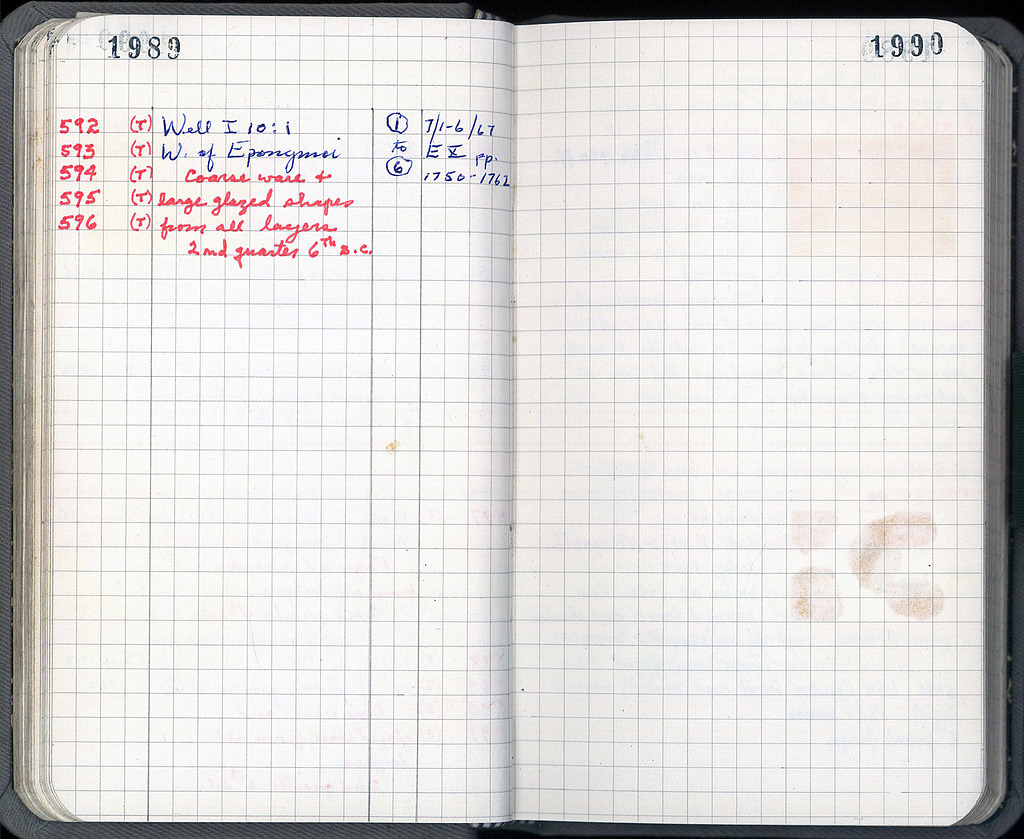 1989
592 (T) Well I 10:1 ① 7/1-6/67
593 (T) W. of Eponymoi to E X pp.
594 (T) Coarse ware + ⑥ 1750-1762
595 (T) large glazed shapes
596 (T) from all layers
2nd quarter 6th B.C.
1990